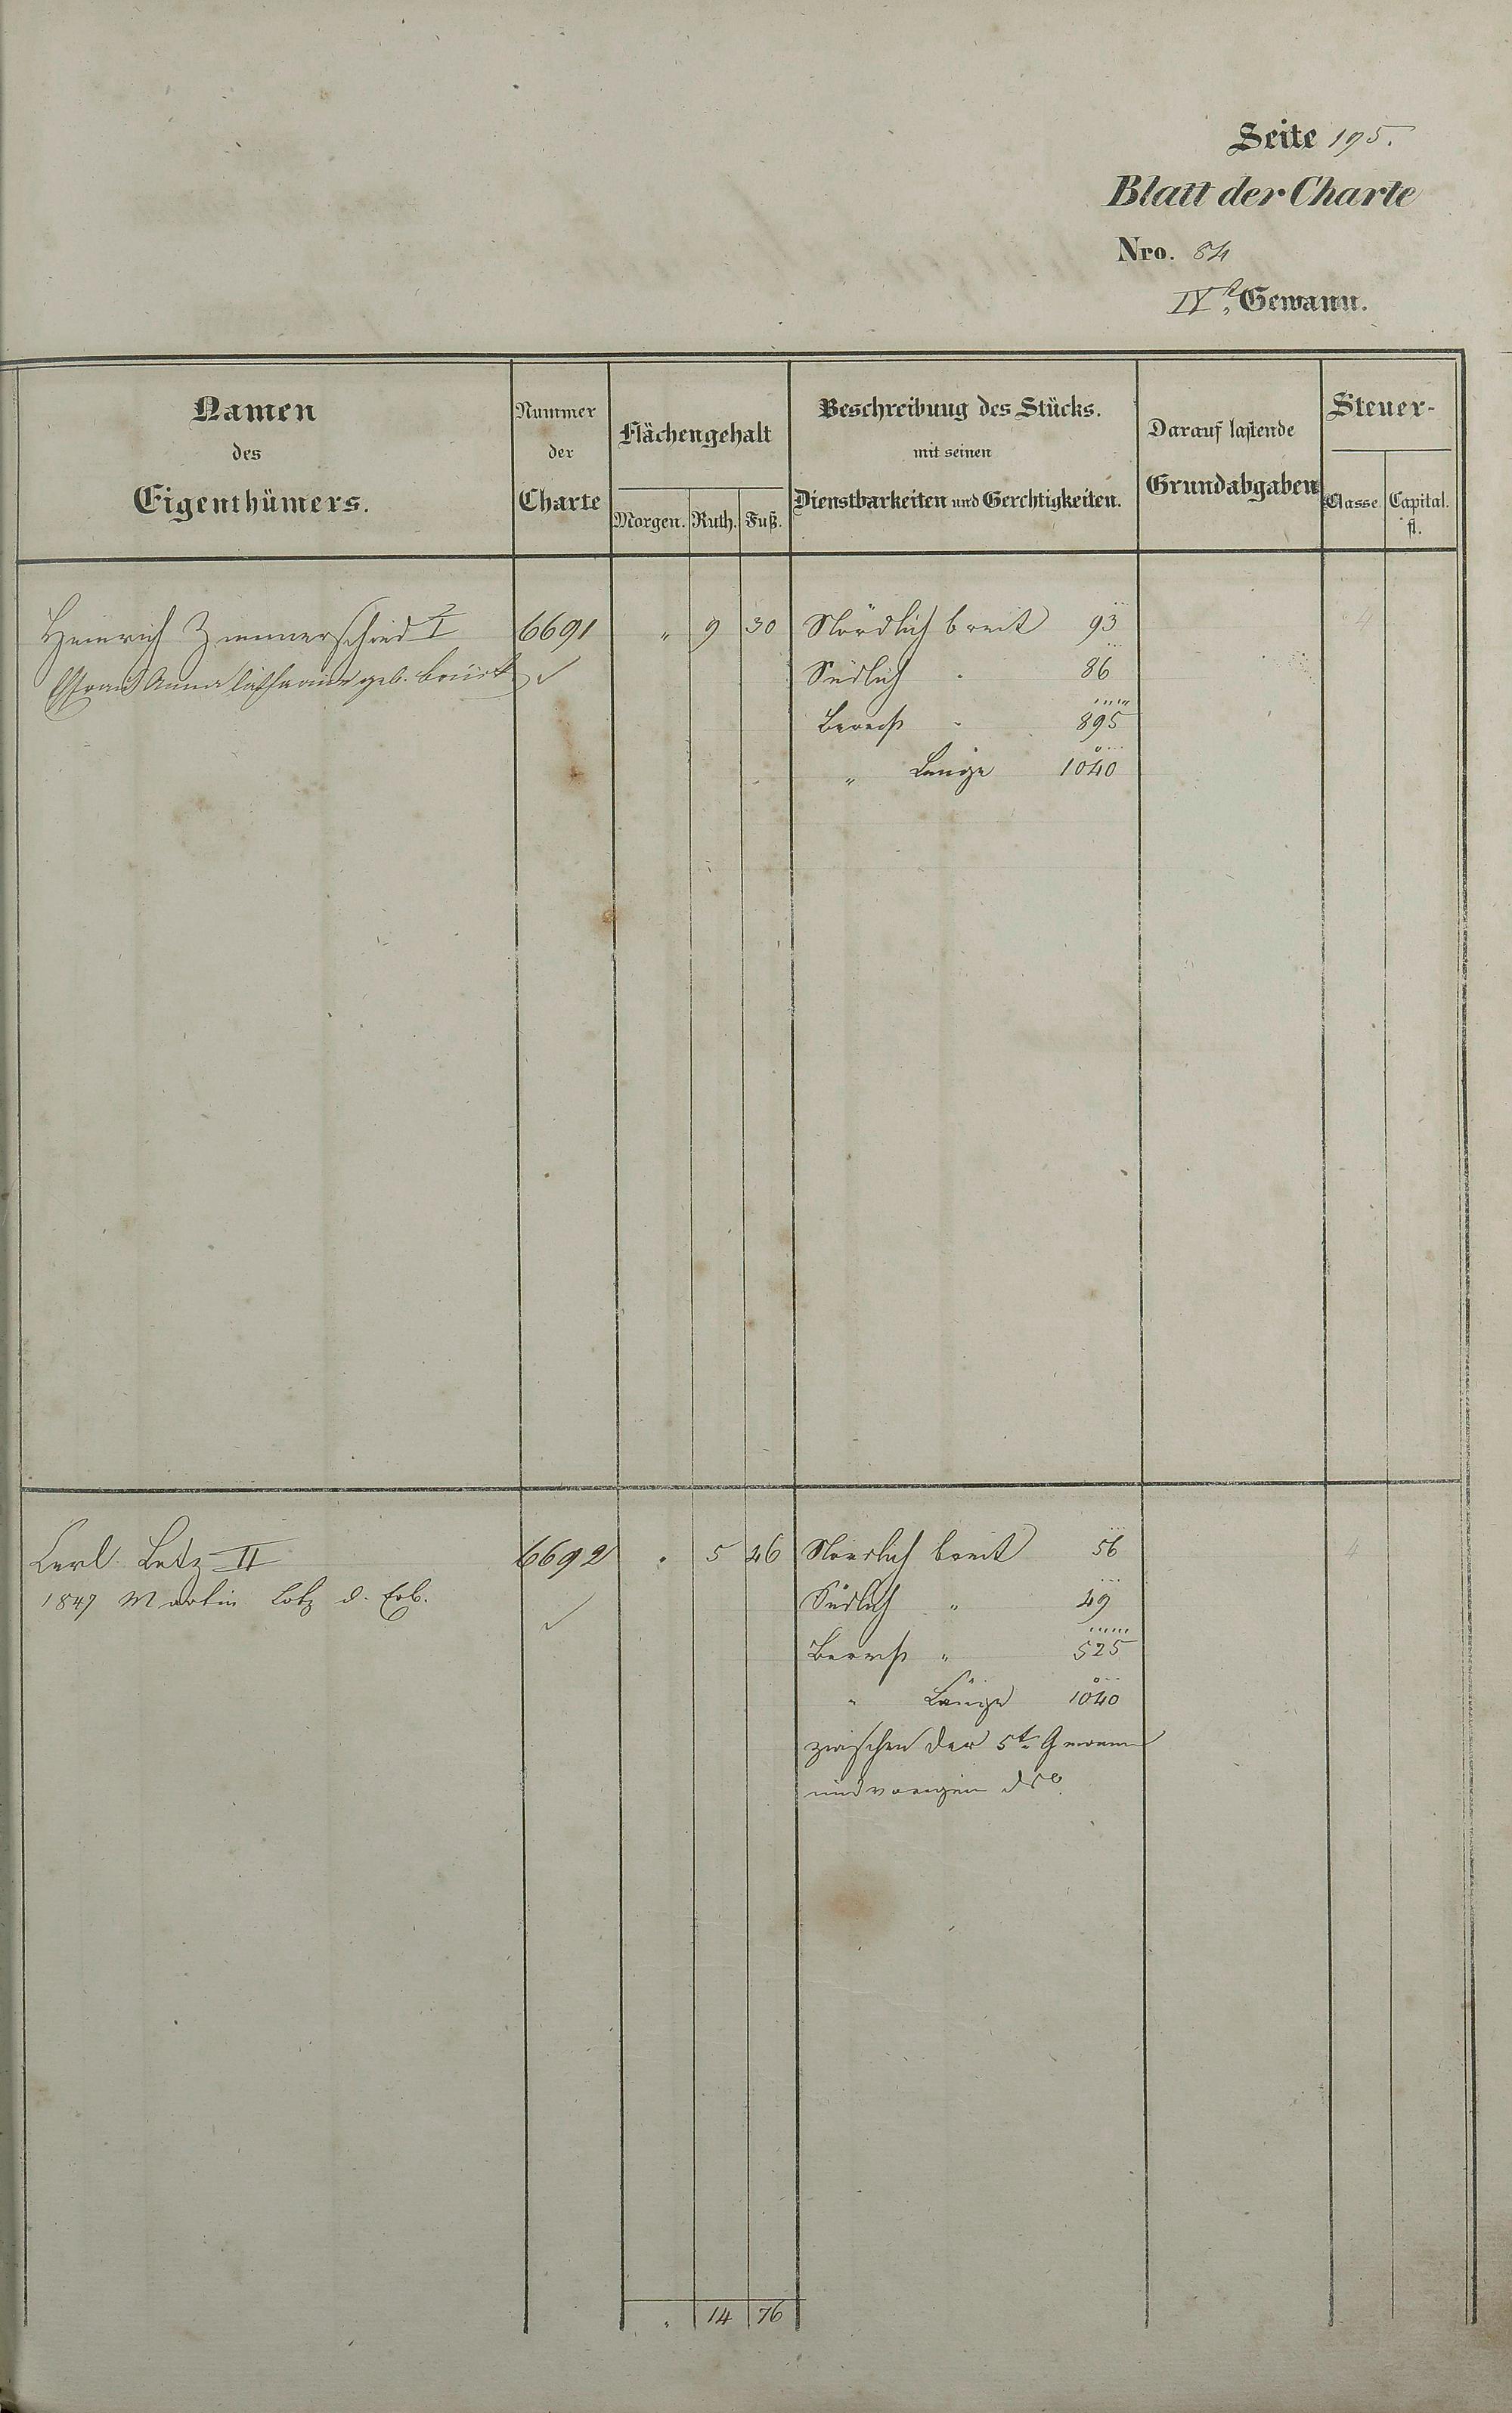 Seite 195.
Blatt der Charte
Nro. 84
IVt. Gewann.
Namen
des
Eigenthümers.
Nummer
der
Charte
Flächengehalt
Morgen. Ruth. Fuß.
Beschreibung des Stücks.
mit seinen
Dienstbarkeiten und Gerechtigkeiten.
Darauf lastende
Grundabgaben
Steuer-
Classe Capital.
fl.
Heinrich Zimmerschied I 6691 " 9 30 Nördlich breit 93 4
Anna Catharine geb. Südlich " 86
Berech " 895
" Länge 1040
Carl Lotz II 6692 " 5 46 Nördlich breit 56 4
1847 Martin Lotz d. Erb. Südlich " 49
Berech " 525
" Länge 1040
zwischen der 5t Gewann
und vorigen
" 14 76